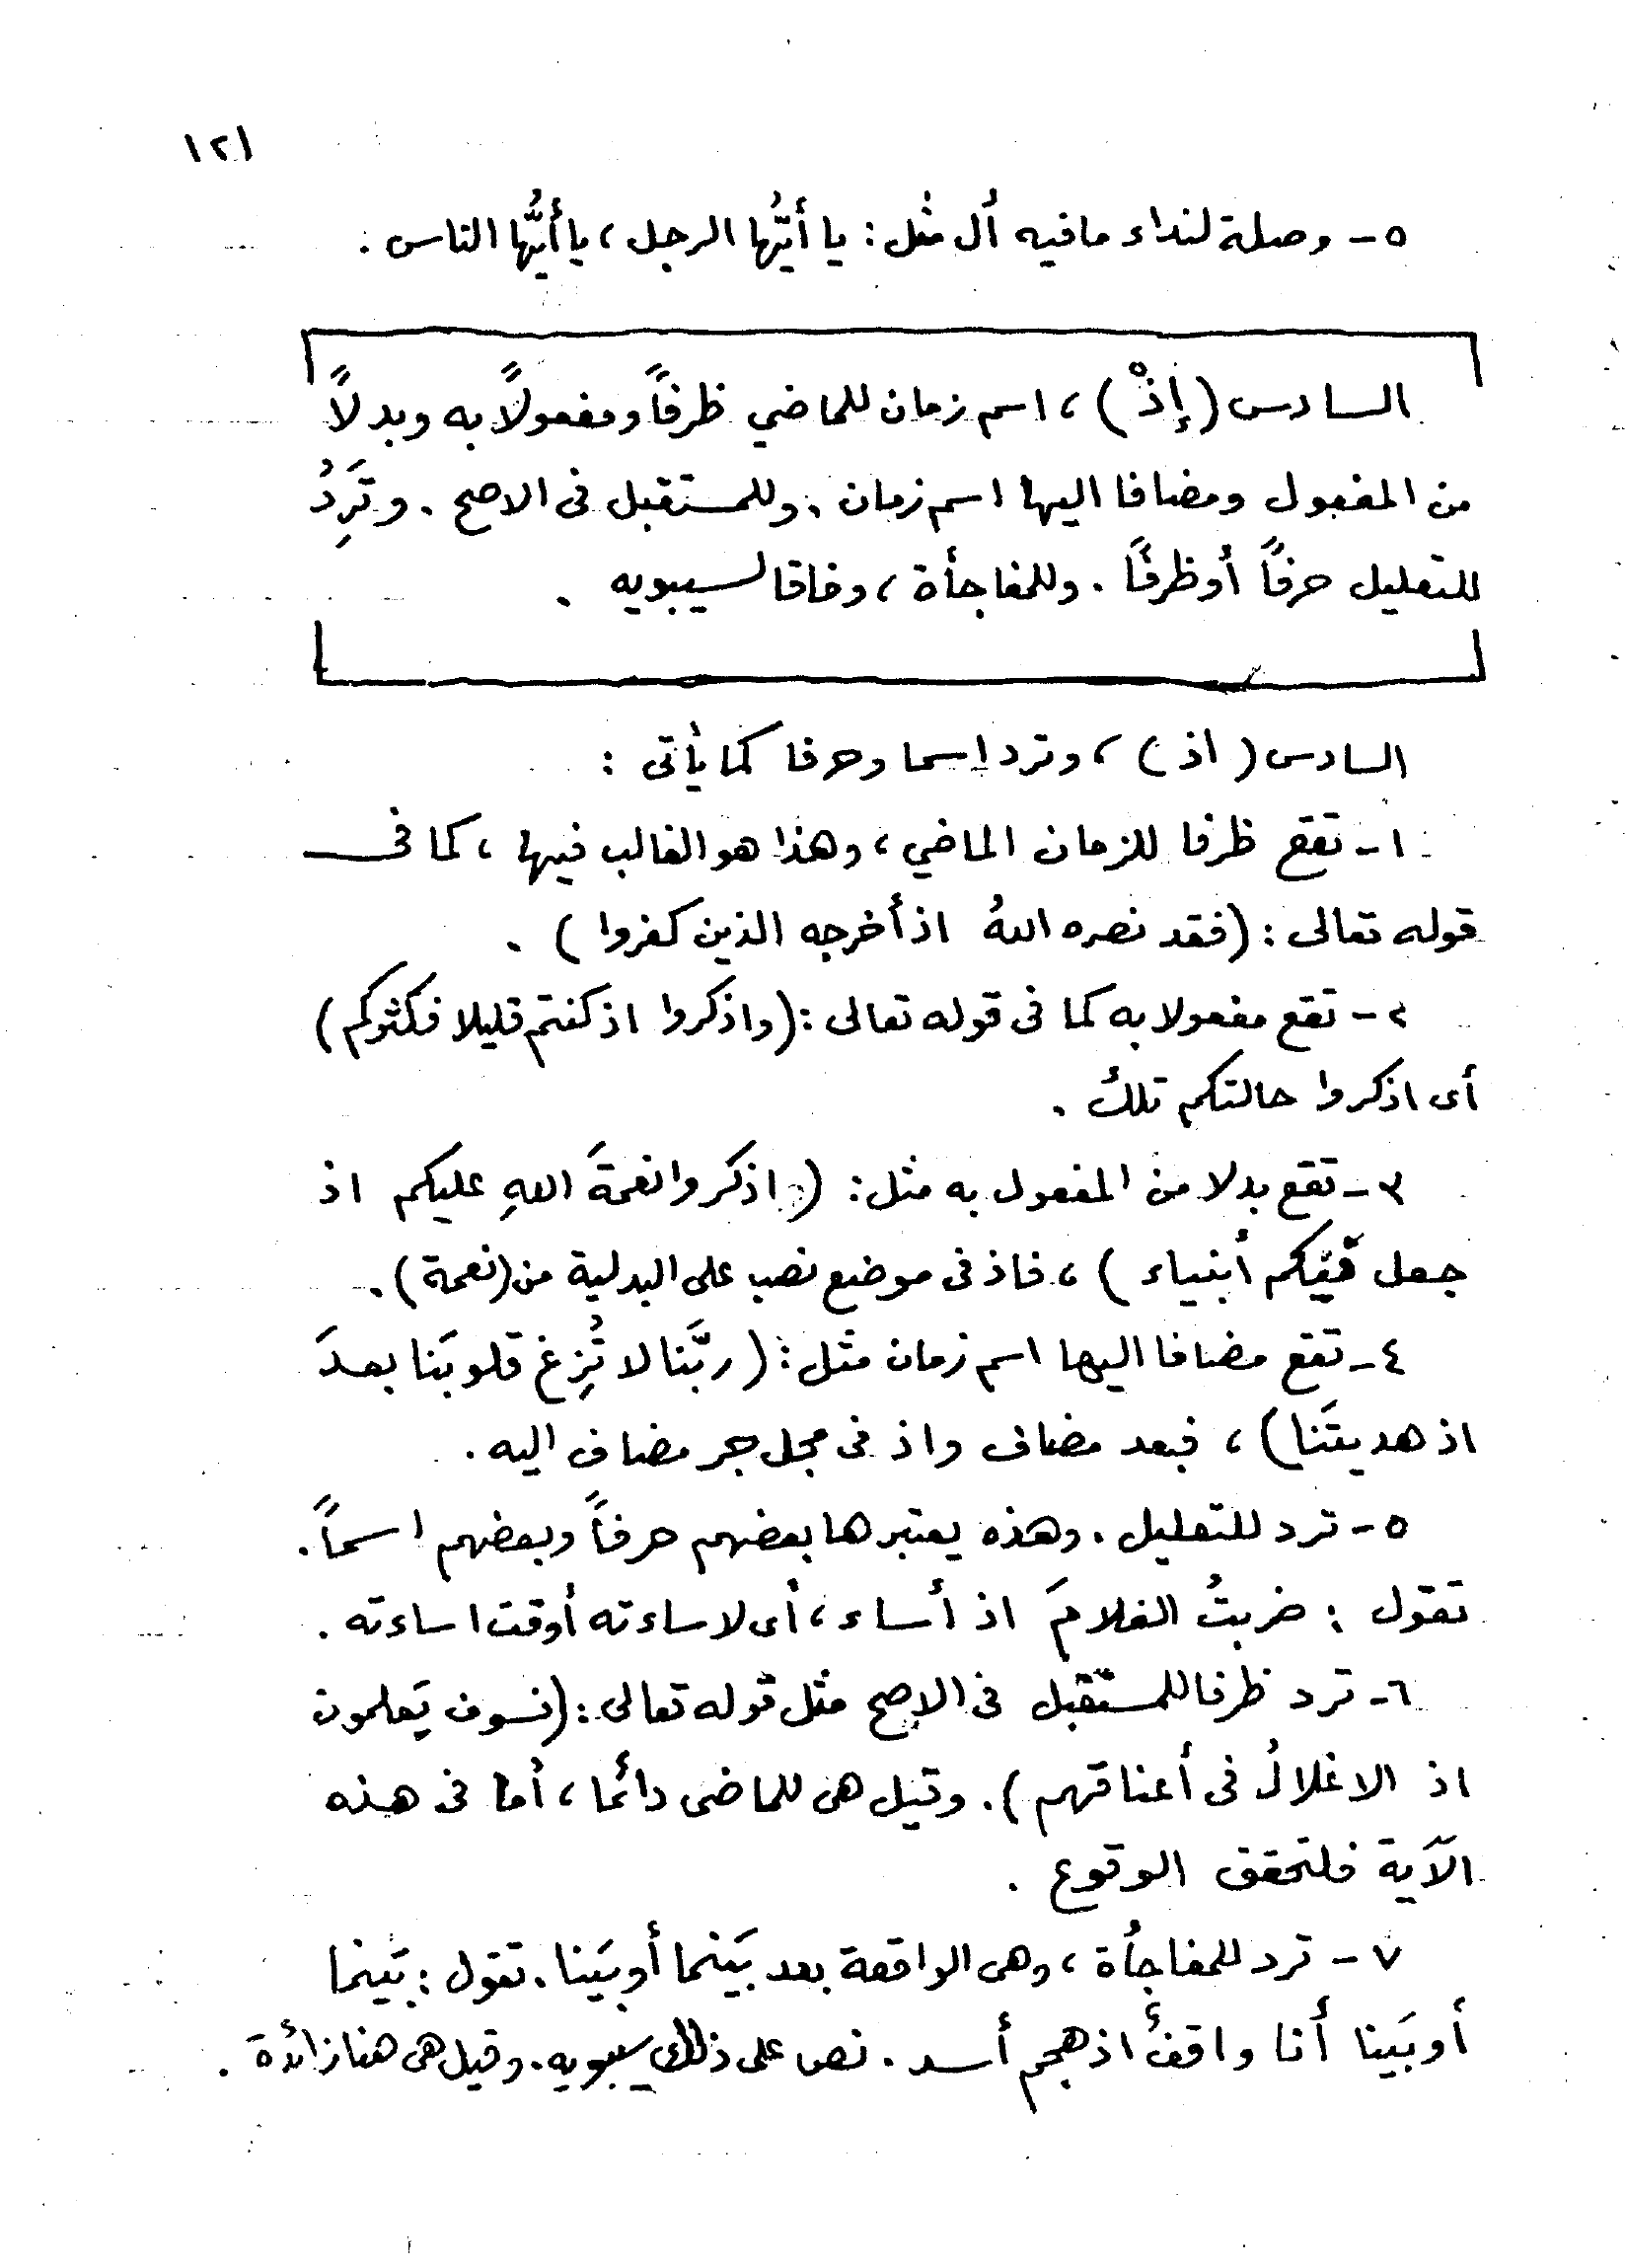 ١٢١
٥ - وصلة لنداء مافيه أل مثل : يا أيُّها الرجل ، يا أيُّها الناس .
السادس ( إذْ ) ، اسم زمان للماضي ظرفاً ومفعولاً به وبدلاً
من المفعول ومضافا اليها اسم زمان . وللمستقبل فى الاصح . وتَرِدُ
للتعليل حرفاً أو ظرفاً . وللمفاجأة ، وفاقا لسيبويه .
السادس ( اذ ) ، وترد اسما وحرفا كما يأتى :
١ - تقع ظرفا للزمان الماضي ، وهذا هو الغالب فيها ، كما فى
قوله تعالى : ( فقد نصره اللهُ اذ أخرجه الذين كفروا ) .
٢ - تقع مفعولا به كما فى قوله تعالى : ( واذكروا اذ كنتم قليلا فكثركم )
أى اذكروا حالتكم تلك .
٣ - تقع بدلا من المفعول به مثل : ( اذكروا نعمةَ اللهِ عليكم اذ
جعل فيكم أنبياء ) ، فاذ فى موضع نصب على البدلية من ( نعمة ) .
٤ - تقع مضافا اليها اسم زمان مثل : ( ربَّنا لا تُزِغ قلوبَنا بعدَ
اذ هديتَنا ) ، فبعد مضاف واذ فى محل جر مضاف اليه .
٥ - ترد للتعليل . وهذه يعتبرها بعضهم حرفاً وبعضهم اسماً .
تقول : ضربتُ الغلامَ اذ أساء ، أى لاساءته أو وقت اساءته .
٦ - ترد ظرفا للمستقبل فى الاصح مثل قوله تعالى : ( فسوف يَعلمون
اذ الاغلالُ فى أعناقهم ) . وقيل هى للماضى دائما ، أما فى هذه
الآية فلتحقق الوقوع .
٧ - ترد للمفاجأة ، وهى الواقعة بعد بَينما أو بَينا . تقول : بَينما
أو بَينا أنا واقفٌ اذ هجم أسد . نص على ذلك سيبويه . وقيل هى هنا زائدة .